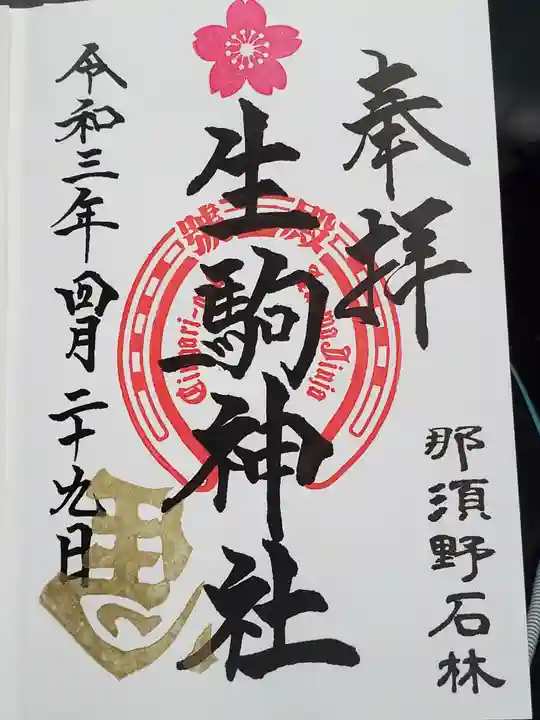 奉拝
那須野石林
生駒神社
令和三年四月二十九日
馬